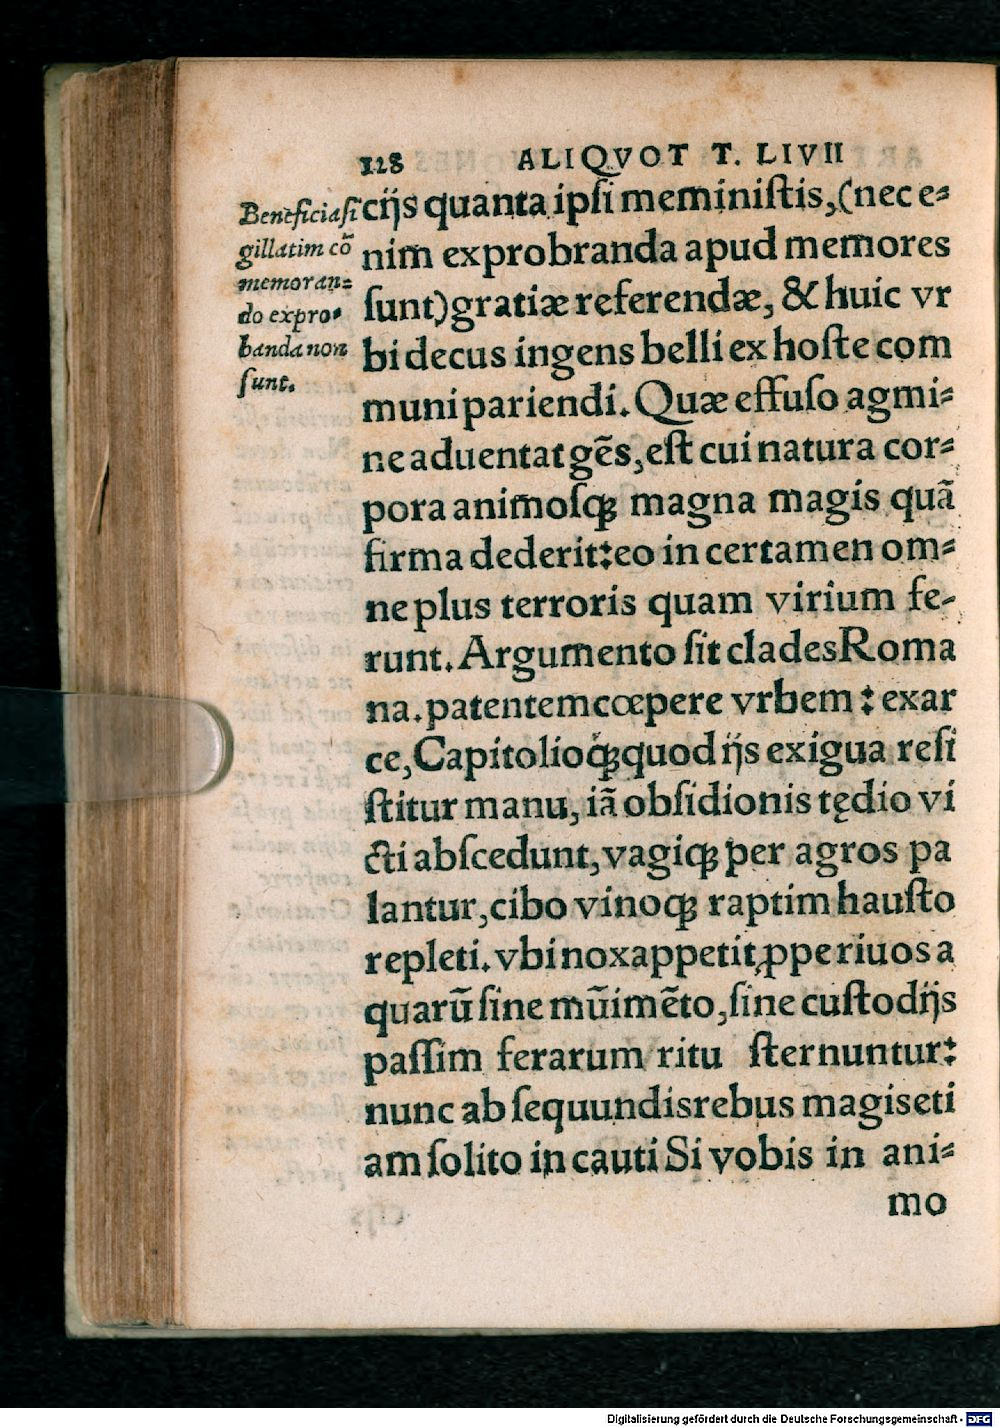 128 ALIQVOT T. LIVII
Beneficia si
gillatim cō
memoran-
do expro-
banda non
sunt.
cijs quanta ipsi meministis, (nec e-
nim exprobranda apud memores
sunt) gratiæ referendæ, & huic vr
bi decus ingens belli ex hoste com
muni pariendi. Quæ effuso agmi-
ne aduentat gēs, est cui natura cor-
pora animosqꝫ magna magis quā
firma dederit: eo in certamen om-
ne plus terroris quam virium fe-
runt. Argumento sit clades Roma
na. patentem cœpere vrbem: exar
ce, Capitolioqꝫ quod ijs exigua resi
stitur manu, iā obsidionis tędio vi
cti abscedunt, vagiqꝫ per agros pa
lantur, cibo vinoqꝫ raptim hausto
repleti. vbi nox appetit, ꝓpe riuos a
quarū sine mūimēto, sine custodijs
passim ferarum ritu sternuntur:
nunc ab sequundis rebus magis eti
am solito incauti Si vobis in ani-
mo
Digitalisierung gefördert durch die Deutsche Forschungsgemeinschaft - DFG